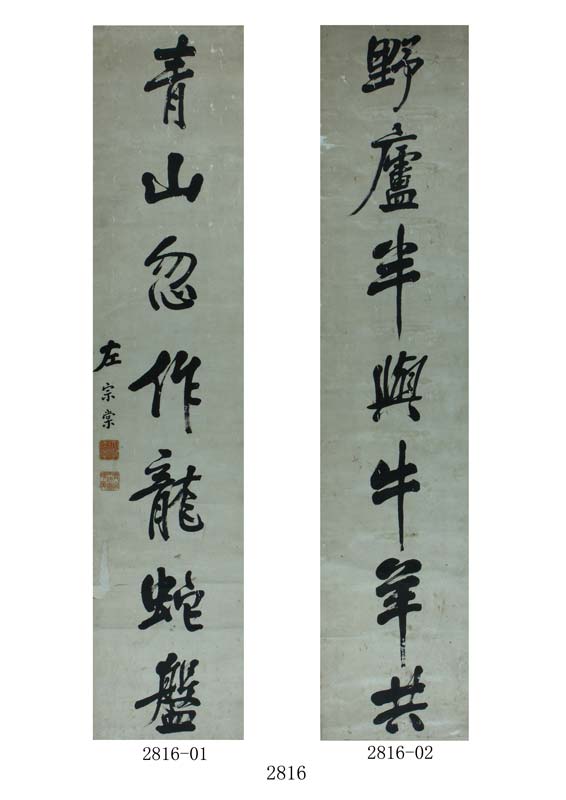 野廬半與牛羊共
青山忽作龍蛇盤
左宗棠
2816-01
2816-02
2816